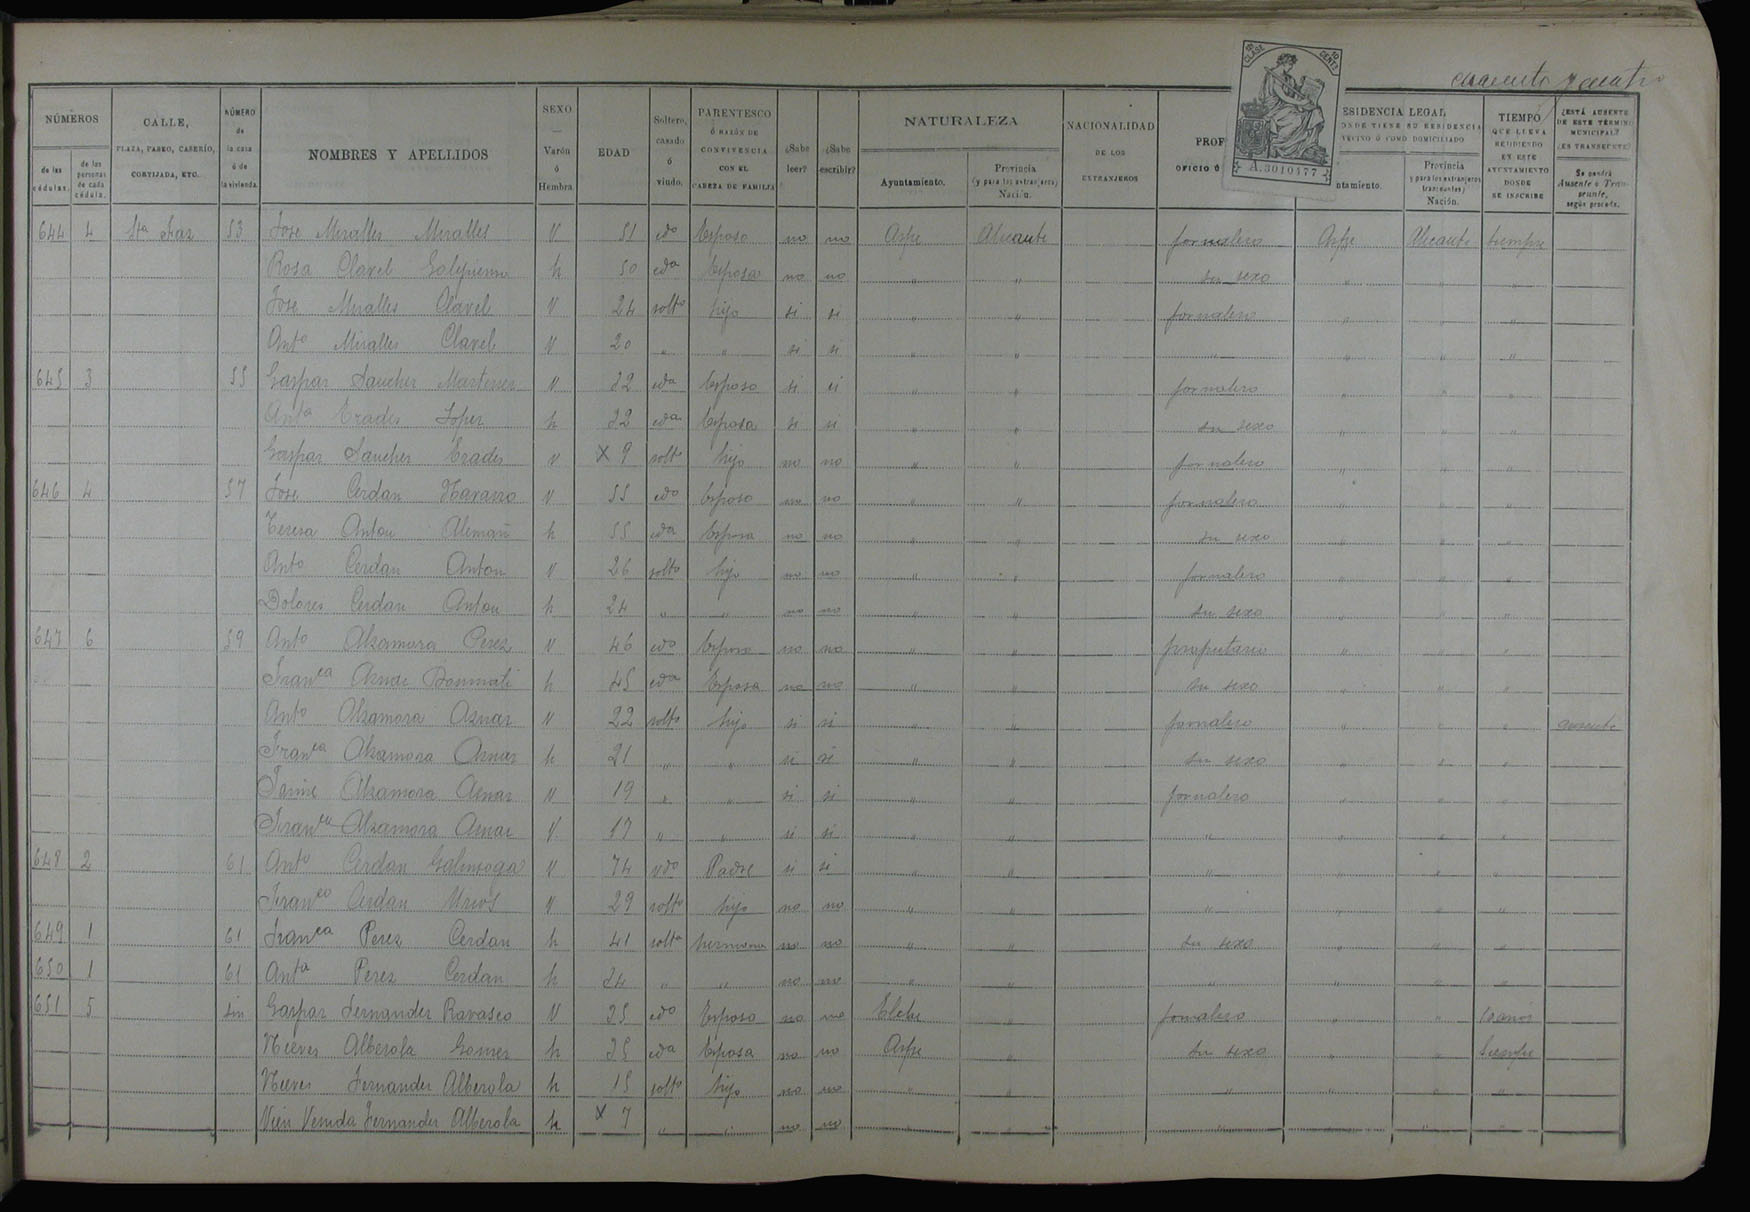 cuarenta y cuatro
8ª CLASE 10 CENTS
A.3010477
NÚMEROS
de las cédulas.
de las personas de cada cédula.
CALLE, PLAZA, PASEO, CASERÍO, CORTIJADA, ETC.
NÚMERO de la casa ó de la vivienda.
NOMBRES Y APELLIDOS
SEXO — Varón ó Hembra.
EDAD
Soltero, casado ó viudo.
PARENTESCO Ó RAZÓN DE CONVIVENCIA CON EL CABEZA DE FAMILIA
¿Sabe leer?
¿Sabe escribir?
NATURALEZA
Ayuntamiento.
Provincia (y para los extranjeros) Nación.
NACIONALIDAD DE LOS EXTRANJEROS
PROF
OFICIO Ó
ESIDENCIA LEGAL
ONDE TIENE SU RESIDENCIA
VECINO Ó COMO DOMICILIADO
ntamiento.
Provincia y para los extranjeros transeuntes) Nación.
TIEMPO QUE LLEVA RESIDIENDO EN ESTE AYUNTAMIENTO DONDE SE INSCRIBE
¿ESTÁ AUSENTE DE ESTE TÉRMINO MUNICIPAL? (ES TRANSEUNTE)
Se pondrá Ausente ó Transeunte, según proceda.
644 4 Sta Faz 53 Jose Miralles Miralles V 51 cdo Esposo no no Aspe Alicante jornalero Aspe Alicante siempre
Rosa Clavel h 50 cda Esposa no no " " su sexo " " "
Jose Miralles Clavel V 24 solto hijo si si " " jornalero " " "
Anto Miralles Clavel V 20 " " si si " " " " " "
645 3 55 Gaspar Sanchez Martinez V 32 cdo Esposo si si " " jornalero " " "
Anta Erades Lopez h 32 cda Esposa si si " " su sexo " " "
Gaspar Sanchez Erades V X 9 solto hijo no no " " jornalero " " "
646 4 57 Jose Cerdan Navarro V 55 cdo Esposo no no " " jornalero " " "
Teresa Anton Alemañ h 55 cda Esposa no no " " su sexo " " "
Anto Cerdan Anton V 26 solto hijo no no " " jornalero " " "
Dolores Cerdan Anton h 24 " " no no " " su sexo " " "
647 6 59 Anto Alzamora Perez V 46 cdo Esposo no no " " propietario " " "
Franca Aznar Bonmati h 45 cda Esposa no no " " su sexo " " "
Anto Alzamora Aznar V 22 solto hijo si si " " jornalero " " " ausente
Franca Alzamora Aznar h 21 " " si si " " su sexo " " "
Jaime Alzamora Aznar V 19 " " si si " " jornalero " " "
Franco Alzamora Aznar V 17 " " si si " " " " " "
648 2 61 Anto Cerdan Galinsoga V 74 vdo Padre si si " " " " " "
Franco Cerdan Urios V 29 solto hijo no no " " " " " "
649 1 61 Franca Perez Cerdan h 41 solta hermana no no " " su sexo " " "
650 1 61 Anta Perez Cerdan h 34 " " no no " " " " " "
651 5 sin Gaspar Fernandez Ravasco V 35 cdo Esposo no no Elche " jornalero " " años
Nieves Alberola Gomez h 35 cda Esposa no no Aspe " su sexo " " siempre
Nieves Fernandez Alberola h 15 solto hijo no no " " " " " "
Vien Venida Fernandez Alberola h X 7 " " no no " " " " " "